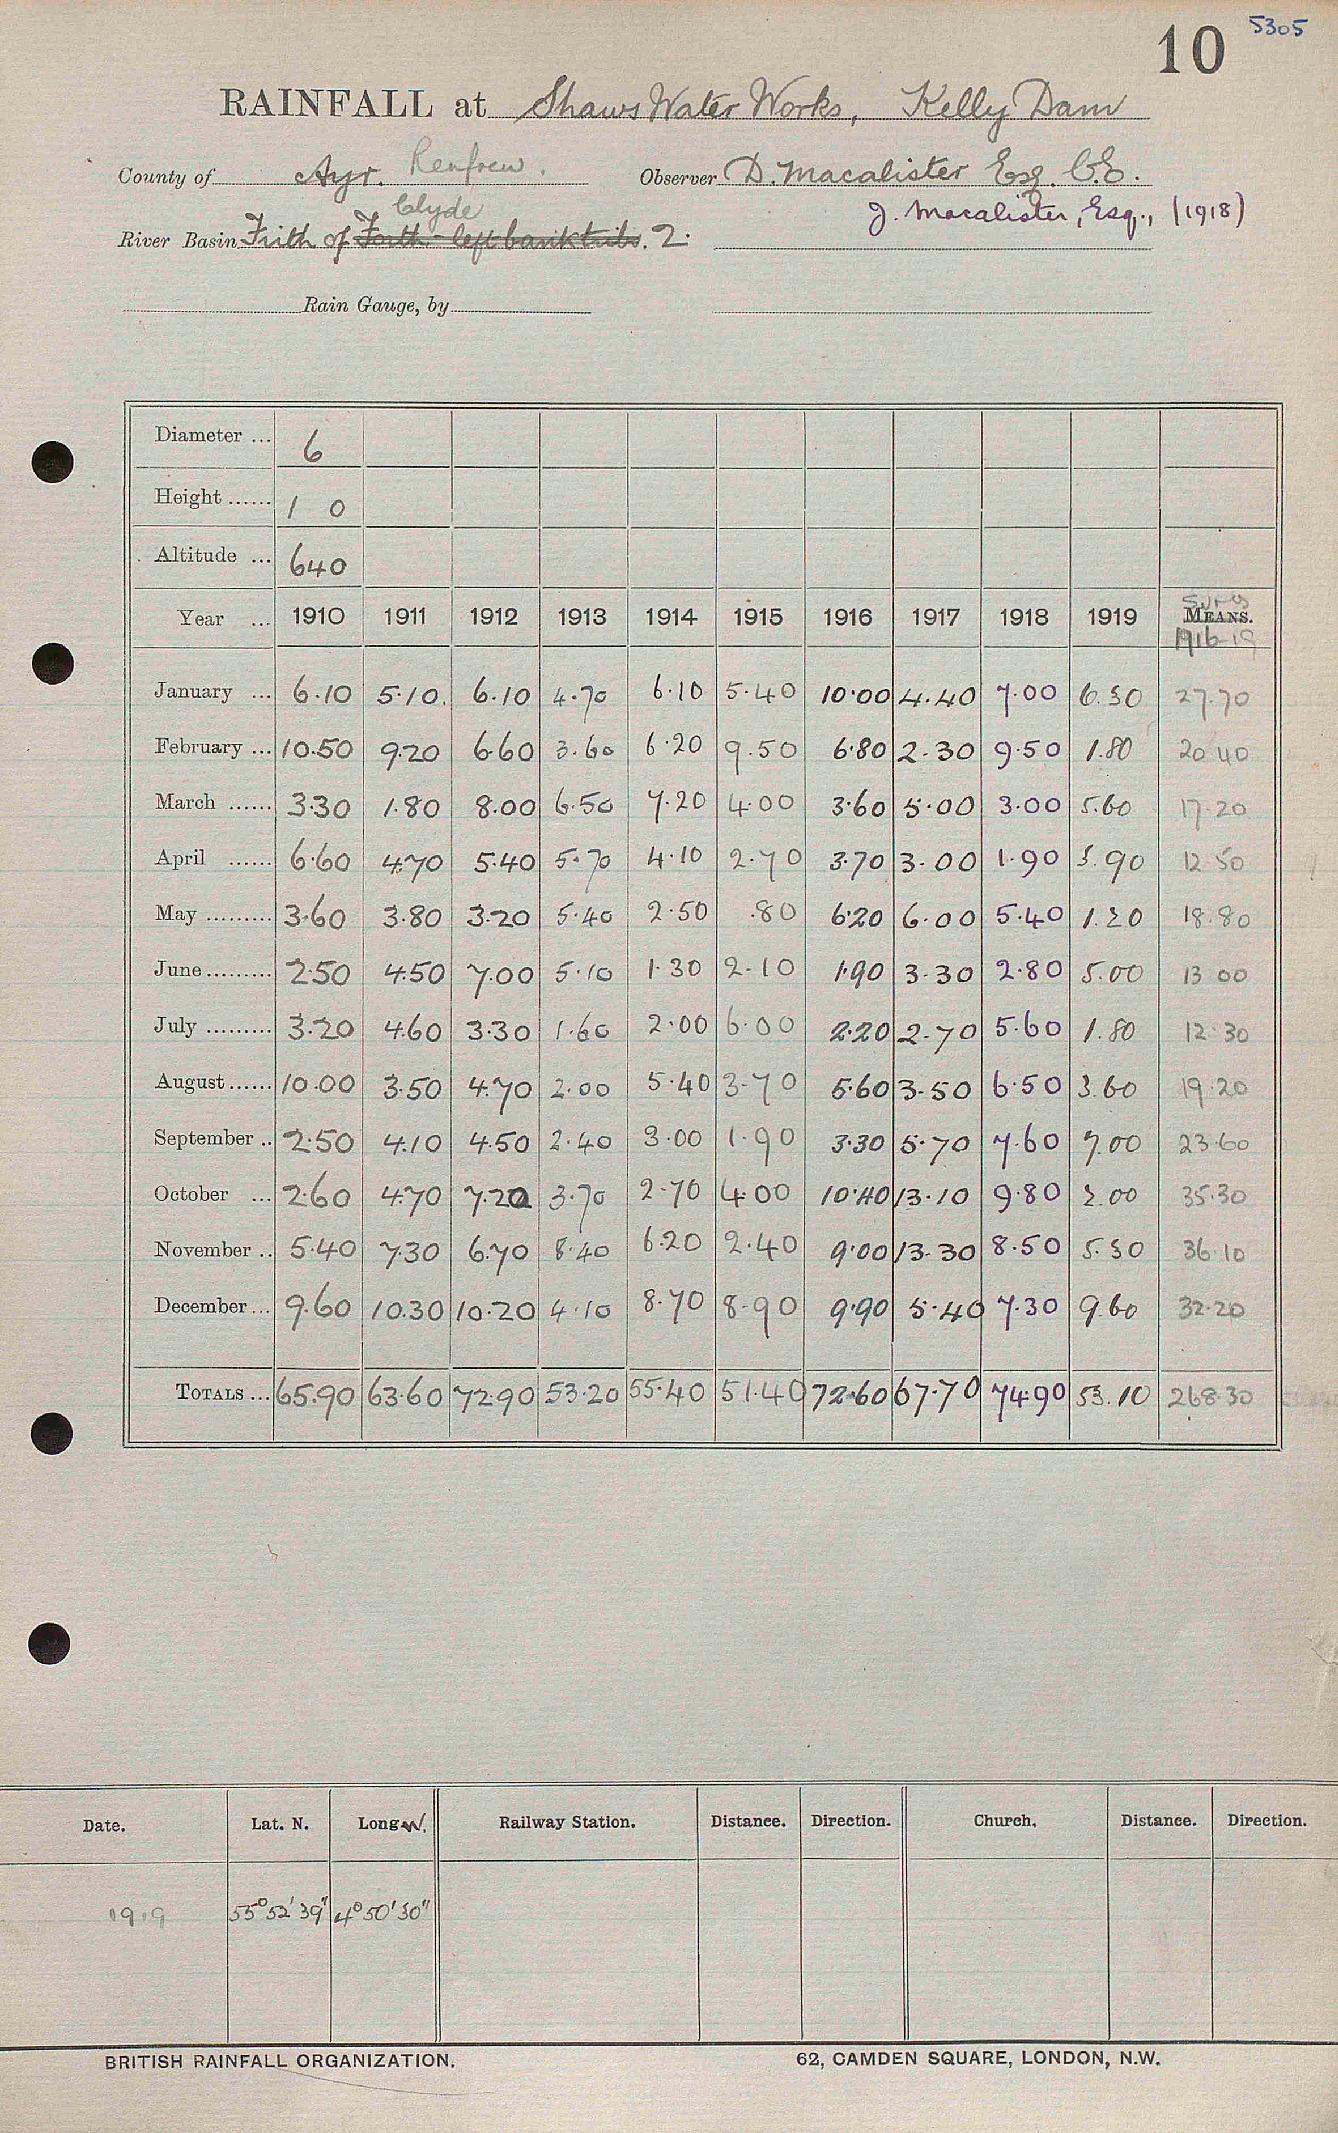 10 5305
RAINFALL at Shaws Water Works, Kelly Dam
County of Ayr. Renfrew. Observer D. Macalister Esq. C.E.
Clyde J. Macalister, Esq., (1918)
River Basin Frith of Forth - left bank tribs. 2.
Rain Gauge, by
Diameter ... 6
Height ...... 1 0
Altitude ... 640
Year ... 1910 1911 1912 1913 1914 1915 1916 1917 1918 1919 Sums MEANS. 1916-19
January ... 6.10 5.10. 6.10 4.70 6.10 5.40 10.00 4.40 7.00 6.30 27.70
February ... 10.50 9.20 6.60 3.60 6.20 9.50 6.80 2.30 9.50 1.80 20.40
March ...... 3.30 1.80 8.00 6.50 7.20 4.00 3.60 5.00 3.00 5.60 17.20
April ...... 6.60 4.70 5.40 5.70 4.10 2.70 3.70 3.00 1.90 3.90 12.50
May ......... 3.60 3.80 3.20 5.40 2.50 .80 6.20 6.00 5.40 1.20 18.80
June ......... 2.50 4.50 7.00 5.10 1.30 2.10 1.90 3.30 2.80 5.00 13.00
July ......... 3.20 4.60 3.30 1.60 2.00 6.00 2.20 2.70 5.60 1.80 12.30
August ...... 10.00 3.50 4.70 2.00 5.40 3.70 5.60 3.50 6.50 3.60 19.20
September .. 2.50 4.10 4.50 2.40 3.00 1.90 3.30 5.70 7.60 7.00 23.60
October ... 2.60 4.70 7.20 3.70 2.70 4.00 10.40 13.10 9.80 2.00 35.30
November .. 5.40 7.30 6.70 8.40 6.20 2.40 9.00 13.30 8.50 5.30 36.10
December ... 9.60 10.30 10.20 4.10 8.70 8.90 9.90 5.40 7.30 9.60 32.20
TOTALS ... 65.90 63.60 72.90 53.20 55.40 51.40 72.60 67.70 74.90 53.10 268.30
Date. Lat. N. Long W. Railway Station. Distance. Direction. Church. Distance. Direction.
1919 55° 52' 39" 4° 50' 30"
BRITISH RAINFALL ORGANIZATION. 62, CAMDEN SQUARE, LONDON, N.W.